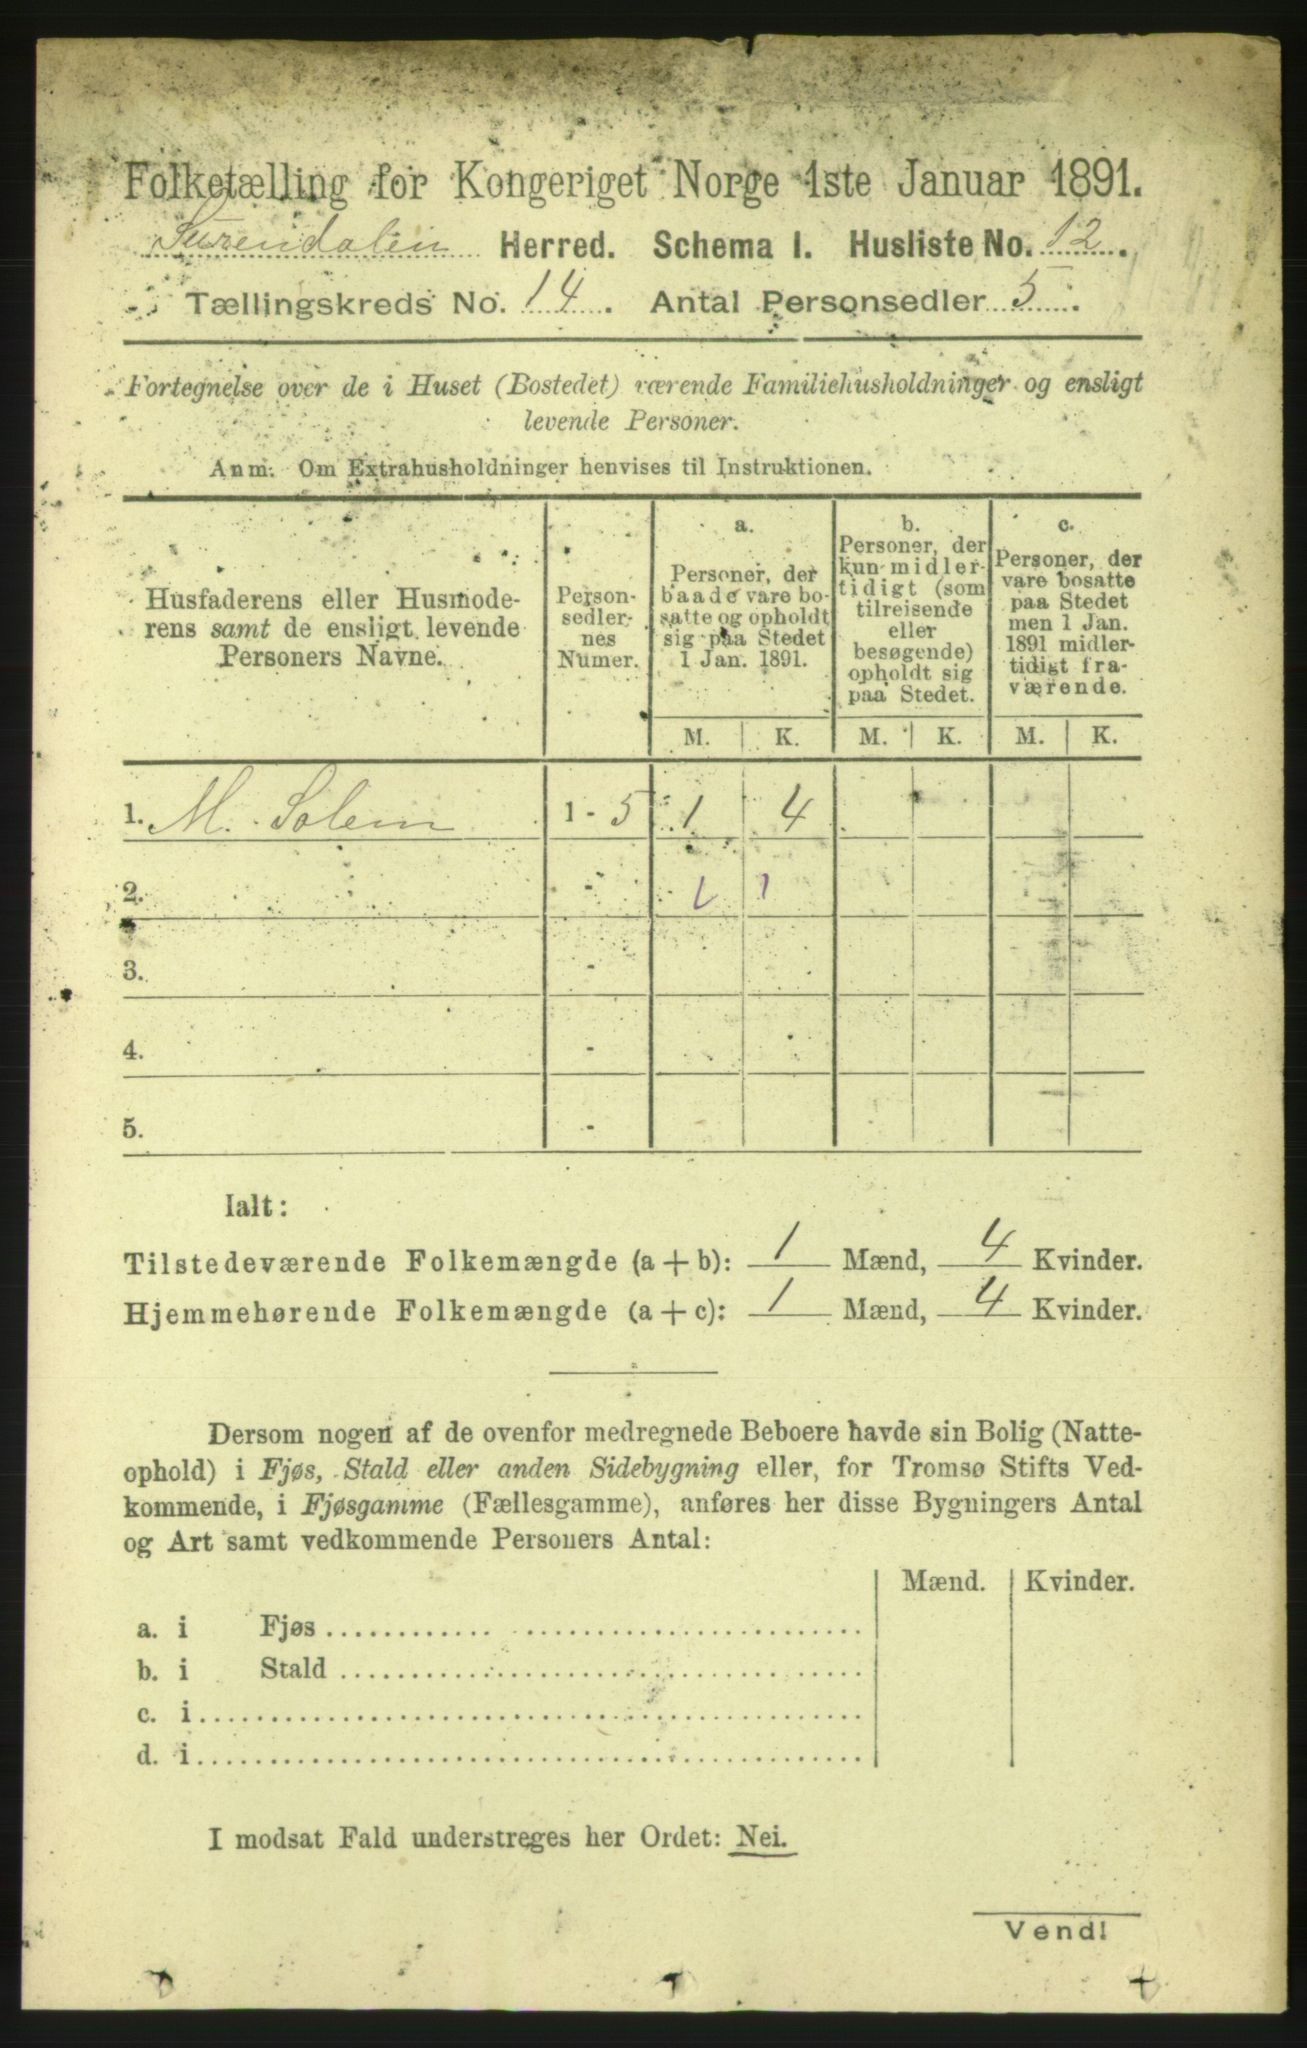 Folketælling for Kongeriget Norge 1ste Januar 1891.
Surendalen Herred. Schema I. Husliste No. 12.
Tællingskreds No. 14. Antal Personsedler 5.
Fortegnelse over de i Huset (Bostedet) værende Familiehusholdninger og ensligt
levende Personer.
Anm. Om Extrahusholdninger henvises til Instruktionen.
Husfaderens eller Husmode-
rens samt de ensligt levende
Personers Navne.
Person-
sedler-
nes
Numer.
a.
Personer, der
baade vare bo-
satte og opholdt
sig paa Stedet
1 Jan. 1891.
b.
Personer, der
kun midler-
tidigt (som
tilreisende
eller
besøgende)
opholdt sig
paa Stedet.
c.
Personer, der
vare bosatte
paa Stedet
men 1 Jan.
1891 midler-
tidigt fra-
værende.
M. K. M. K. M. K.
1. M. Solem 1 - 5 1 4
2. -
3. -
4. -
5. -
Ialt:
Tilstedeværende Folkemængde (a + b): 1 Mænd, 4 Kvinder.
Hjemmehørende Folkemængde (a + c): 1 Mænd, 4 Kvinder.
Dersom nogen af de ovenfor medregnede Beboere havde sin Bolig (Natte-
ophold) i Fjøs, Stald eller anden Sidebygning eller, for Tromsø Stifts Ved-
kommende, i Fjøsgamme (Fællesgamme), anføres her disse Bygningers Antal
og Art samt vedkommende Personers Antal:
Mænd. Kvinder.
a. i Fjøs
b. i Stald
c. i
d. i
I modsat Fald understreges her Ordet: Nei.
Vend!